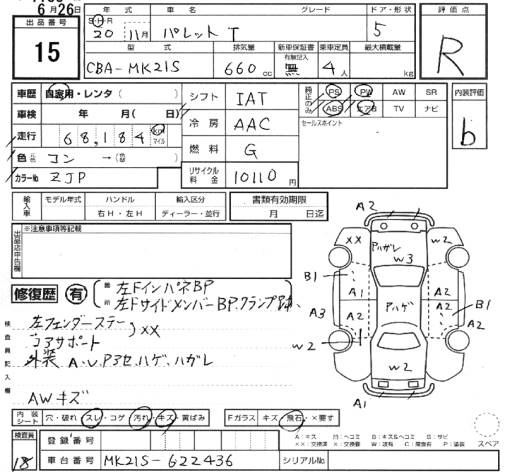 6月26日
出品番号
15
年式 車名 グレード ドア・形状
S・H・R 20年 11月 パレット T 5
型式 排気量 新車保証書 有無記入 乗車定員 最大積載量
CBA-MK21S 660cc 無 4人 kg
評価点
R
車歴 自家用・レンタ( )
車検 年 月( 日)
走行 68,184 km マイル
色 コン →
カラーNo ZJP
シフト IAT
冷房 AAC
燃料 G
リサイクル料金 10110円
純正のみ PS PW AW SR
ABS エアB TV ナビ
セールスポイント
内装評価
b
輸入車 モデル年式 ハンドル 輸入区分
右H・左H ディーラー・並行
書類有効期限
月 日迄
※注意事項等記載
出品店申告欄
修復歴 有 箇所
左ドインパネBP
左ドサイドメンバーBP.クランプ跡
検査員記入欄
左フェンダーステー
コアサポート XX
外装 A・U、P3セ、ハゲ、ハガレ
AWキズ
A2
XX アハガレ W2
W3
B1 A1 A2
A3 A2 アハゲ A2 B1
A2
W2 W2
A1
内装シート 穴・破れ スレ・コゲ 汚れ・キズ・黄ばみ Fガラス キズ・飛石・×要す
検査員
18
登録番号
車台番号 MK21S-622436 シリアルNo
スペア